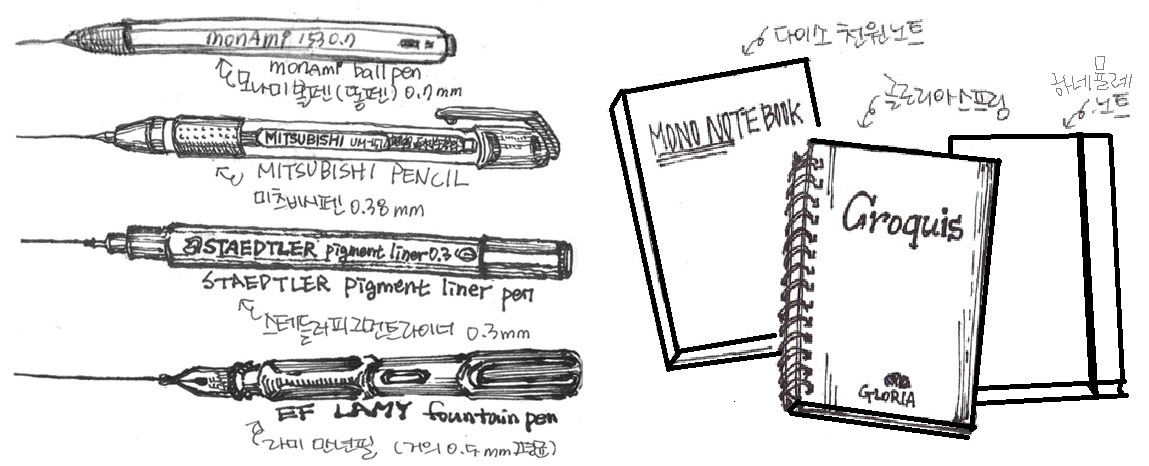 monAmi 153 0.7
monAmi ball pen
모나미볼펜(똥펜) 0.7mm
MITSUBISHI UM-151
MITSUBISHI PENCIL
미츠비시펜 0.38mm
STAEDTLER pigment liner 0.3
STAEDTLER pigment liner pen
스테들러피그먼트라이너 0.3mm
EF
EF LAMY fountain pen
라미 만년필 (거의 0.5mm
다이소 천원노트
MONO NOTE BOOK
글로리아스프링
Croquis
GLORIA
하네뮬레
노트